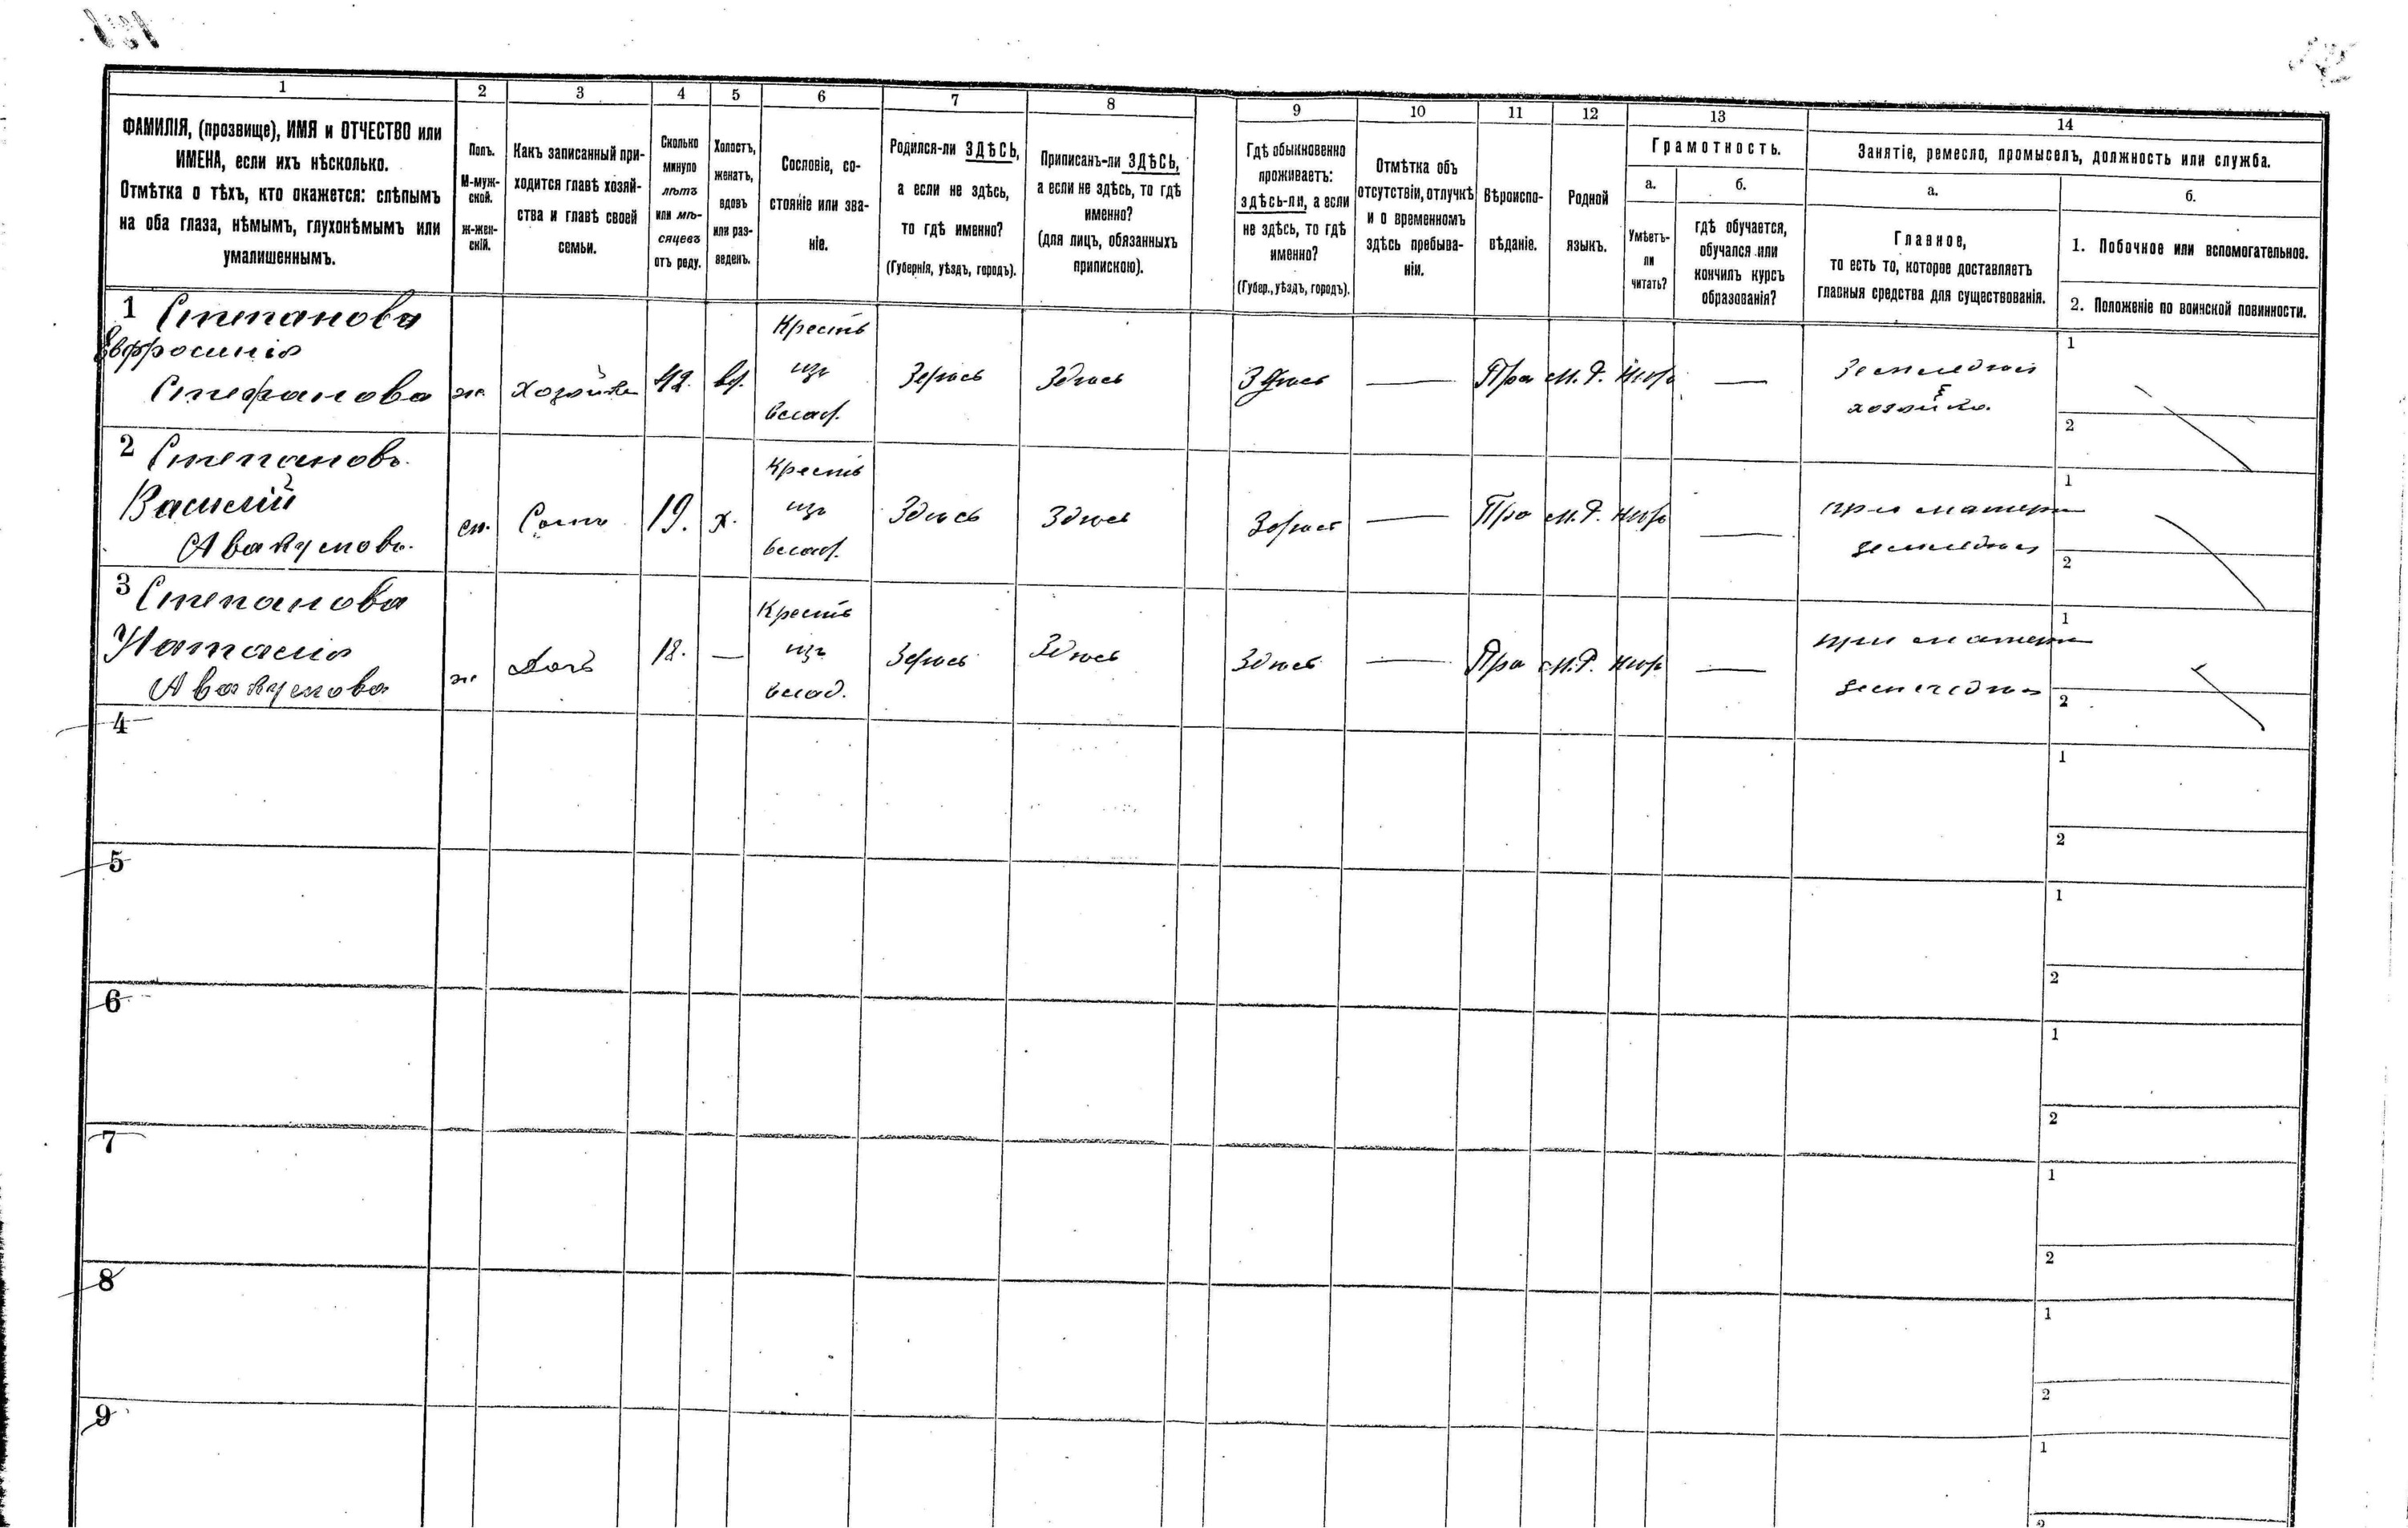 1
2
3
4
5
6
7
8
9
10
11
12
13
14
ФАМИЛІЯ, (прозвище), ИМЯ и ОТЧЕСТВО или
ИМЕНА, если ихъ нѣсколько.
Отмѣтка о тѣхъ, кто окажется: слѣпымъ
на оба глаза, нѣмымъ, глухонѣмымъ или
умалишеннымъ.
Полъ.
М-муж-
ской.
ж-жен-
скій.
Какъ записанный при-
ходится главѣ хозяй-
ства и главѣ своей
семьи.
Сколько
минуло
лѣтъ
или мѣ-
сяцевъ
отъ роду.
Холостъ,
женатъ,
вдовъ
или раз-
веденъ.
Сословіе, со-
стояніе или зва-
ніе.
Родился-ли ЗДѢСЬ,
а если не здѣсь,
то гдѣ именно?
(Губернія, уѣздъ, городъ).
Приписанъ-ли ЗДѢСЬ,
а если не здѣсь, то гдѣ
именно?
(для лицъ, обязанныхъ
припискою).
Гдѣ обыкновенно
проживаетъ:
здѣсь-ли, а если
не здѣсь, то гдѣ
именно?
(Губер., уѣздъ, городъ).
Отмѣтка объ
отсутствіи, отлучкѣ
и о временномъ
здѣсь пребыва-
ніи.
Вѣроиспо-
вѣданіе.
Родной
языкъ.
Грамотность.
а.
Умѣетъ-
ли
читать?
б.
гдѣ обучается,
обучался или
кончилъ курсъ
образованія?
Занятіе, ремесло, промыселъ, должность или служба.
а.
Главное,
то есть то, которое доставляетъ
главныя средства для существованія.
б.
1. Побочное или вспомогательное.
2. Положеніе по воинской повинности.
1 Степанова
Евфросинія
Стефанова
ж.
хозяйка
42.
вд.
Кресть
изъ
влад.
Здѣсь
Здѣсь
Здѣсь
—
Пра
М.Р.
нѣтъ
—
Земледѣл
хозяйка.
1
2
2 Степановъ.
Василій
Авакумовъ.
м.
Сынъ
19.
х.
Кресть
изъ
влад.
Здѣсь
Здѣсь
Здѣсь
—
Пра
М.Р.
нѣтъ
—
при матери
земледѣл
1
2
3 Степанова
Наталія
Авакумова
ж
Дочь
18.
—
Кресть
изъ
влад.
Здѣсь
Здѣсь
Здѣсь
—
Пра
М.Р.
нѣтъ
—
при матери
земледѣл
1
2
4
1
2
5
1
2
6
1
2
7
1
2
8
1
2
9
1
2